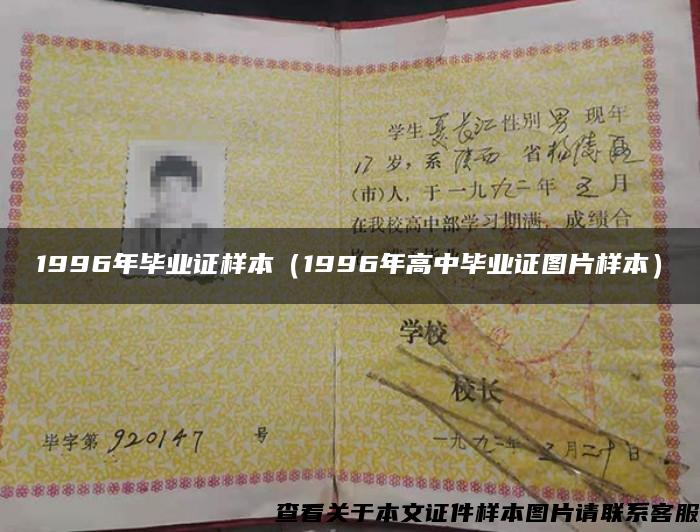 学生夏长江性别男现年
17岁，系陕西省杨陵区
（市）人，于一九九二年五月
在我校高中部学习期满，成绩合
1996年毕业证样本（1996年高中毕业证图片样本）
学校
校长
毕字第920147号
一九九二年五月二十日
查看关于本文证件样本图片请联系客服